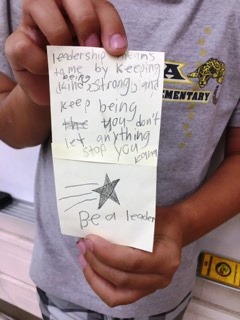 leadership means
to me by keeping
being
kind strong and
keep being
the you don't
let anything
stop you
Be a leader
A
EMENTARY